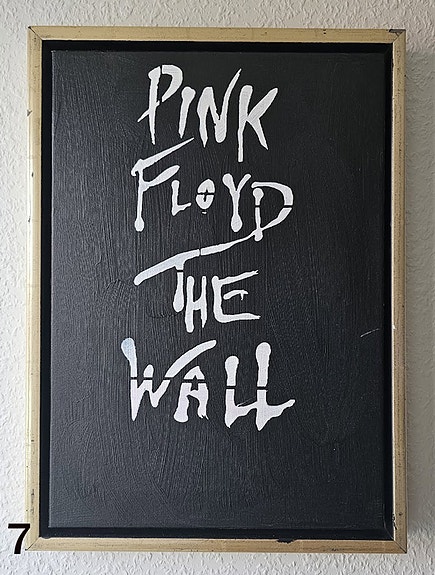 PINK
FLOYD
THE
WALL
7